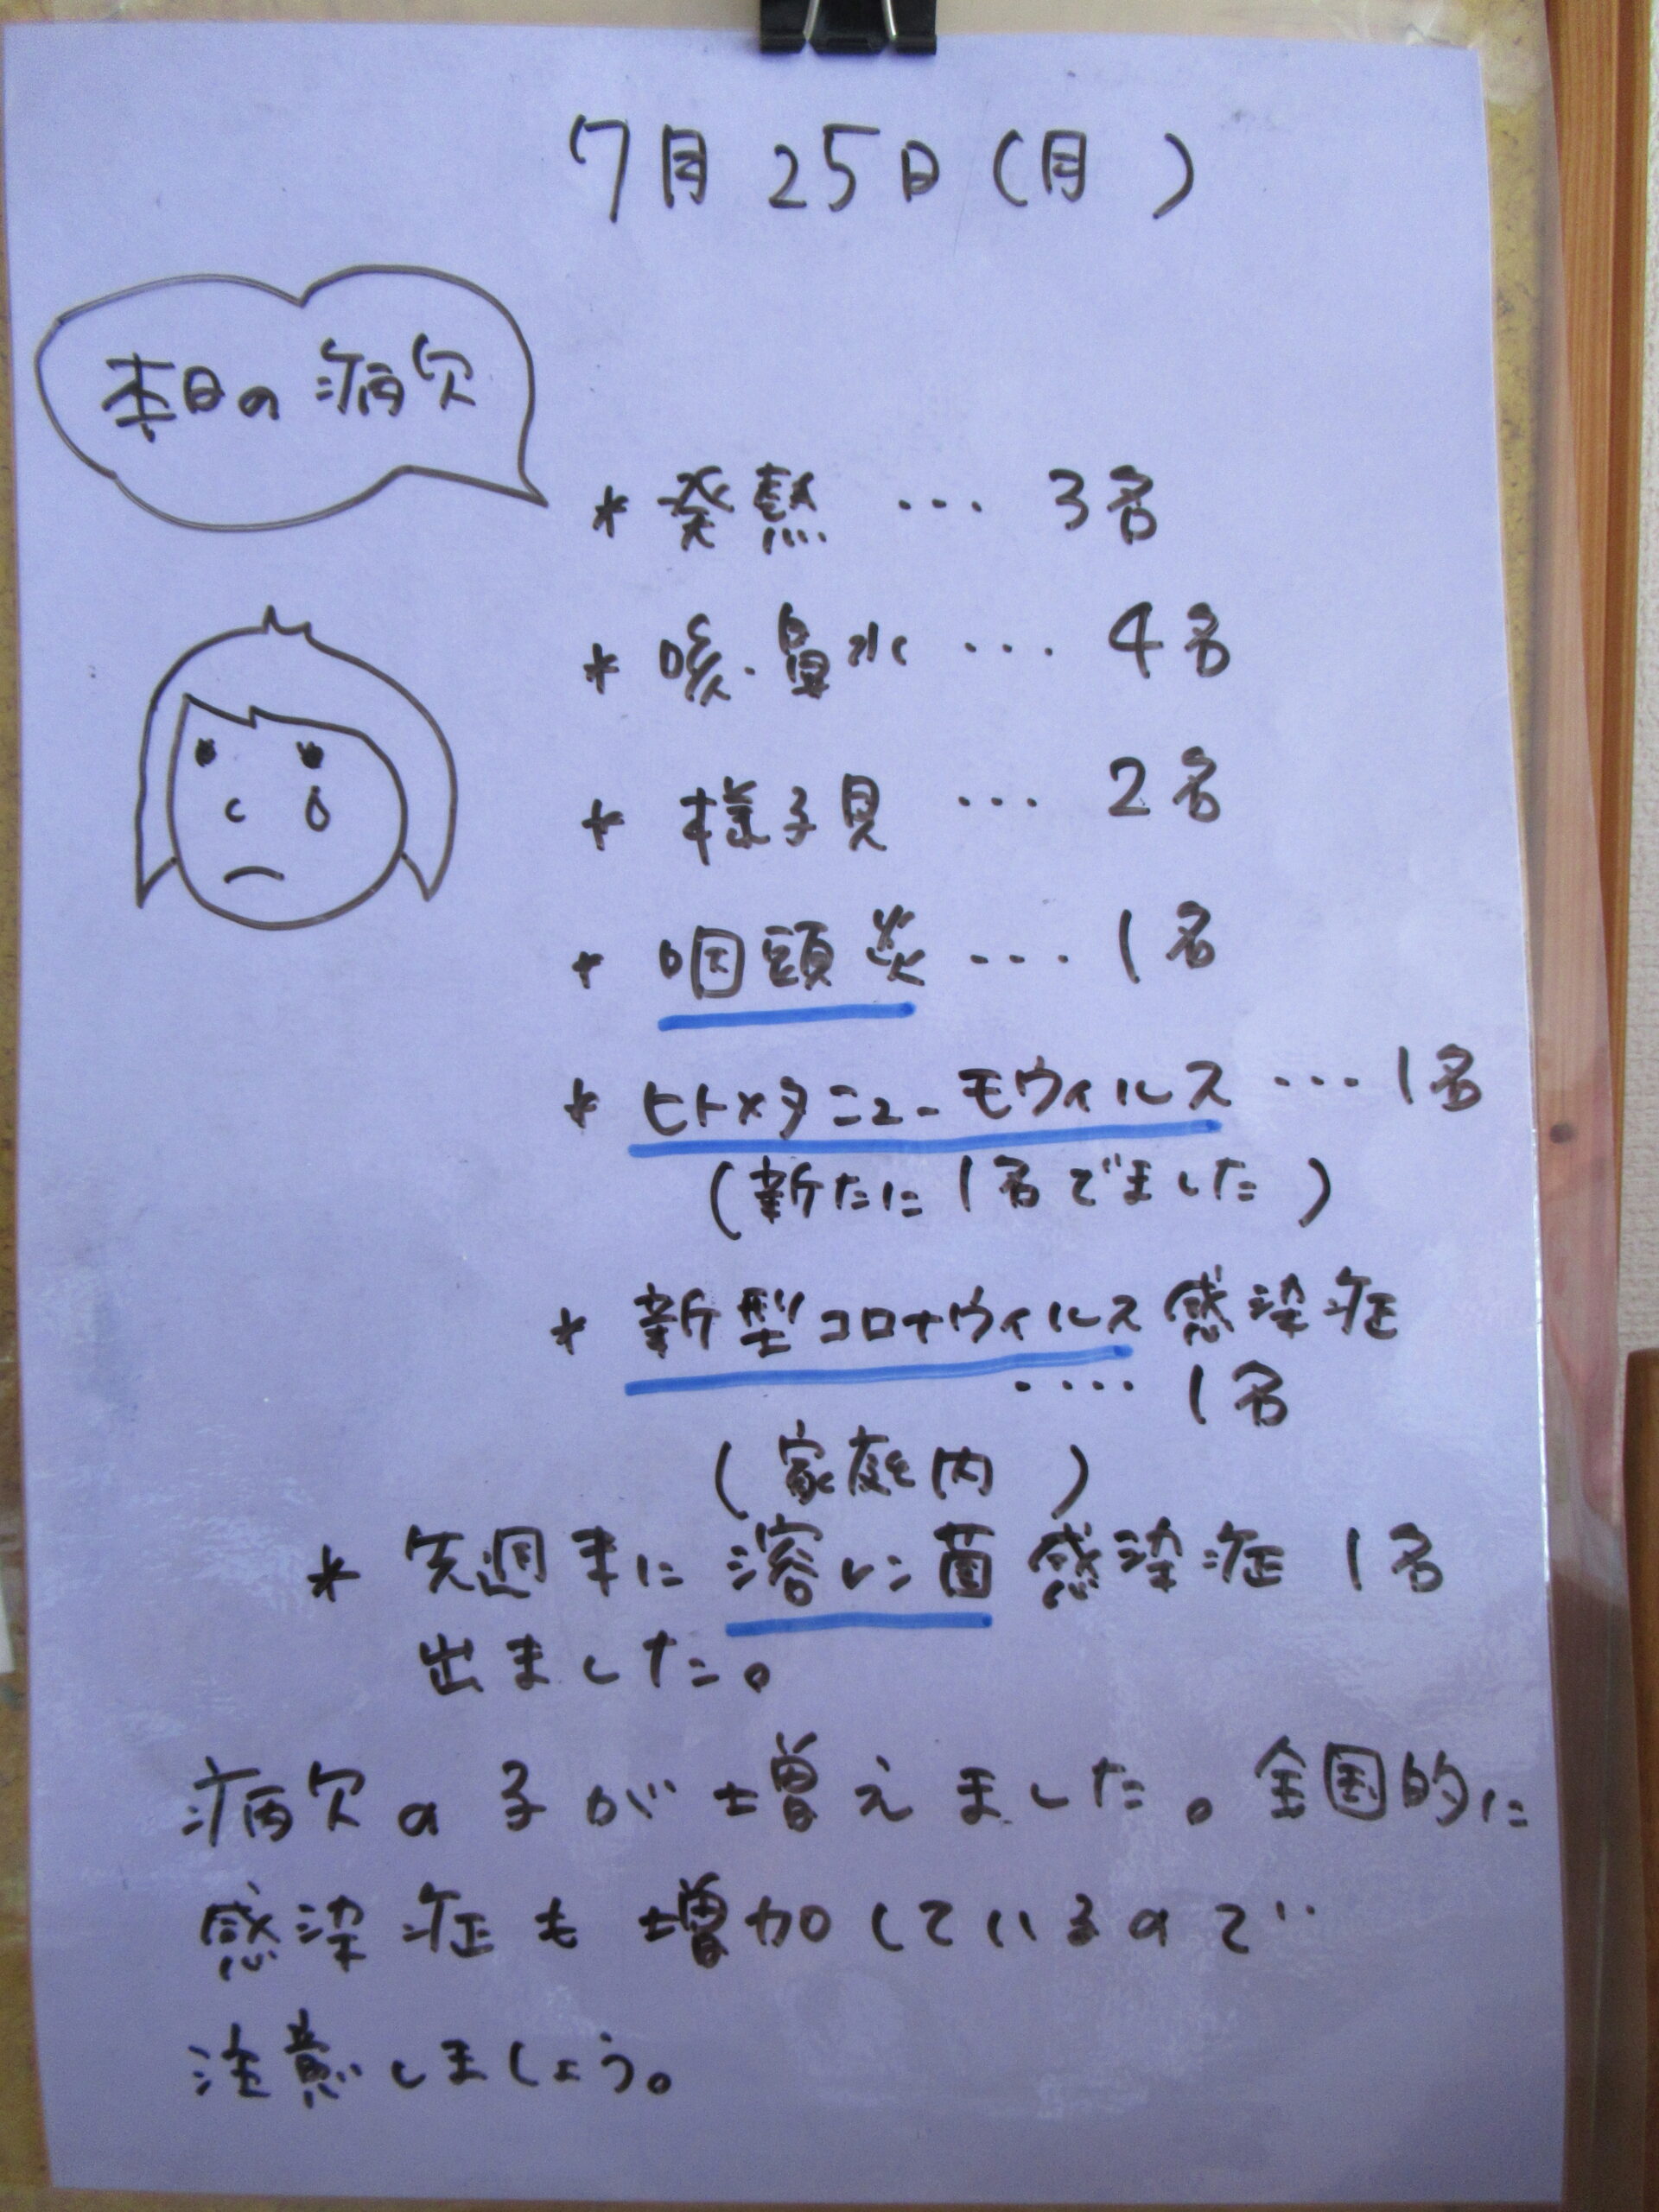 7月25日(月 )
本日の病欠
* 発熱 … 3名
* 咳・鼻水 … 4名
* 様子見 … 2名
* 咽頭炎 … 1名
* ヒトメタニューモウィルス … 1名
(新たに1名でました)
* 新型コロナウィルス感染症
‥‥ 1名
(家庭内 )
* 先週末に溶レン菌感染症 1名
出ました。
病欠の子が増えました。全国的に
感染症も増加しているので
注意しましょう。